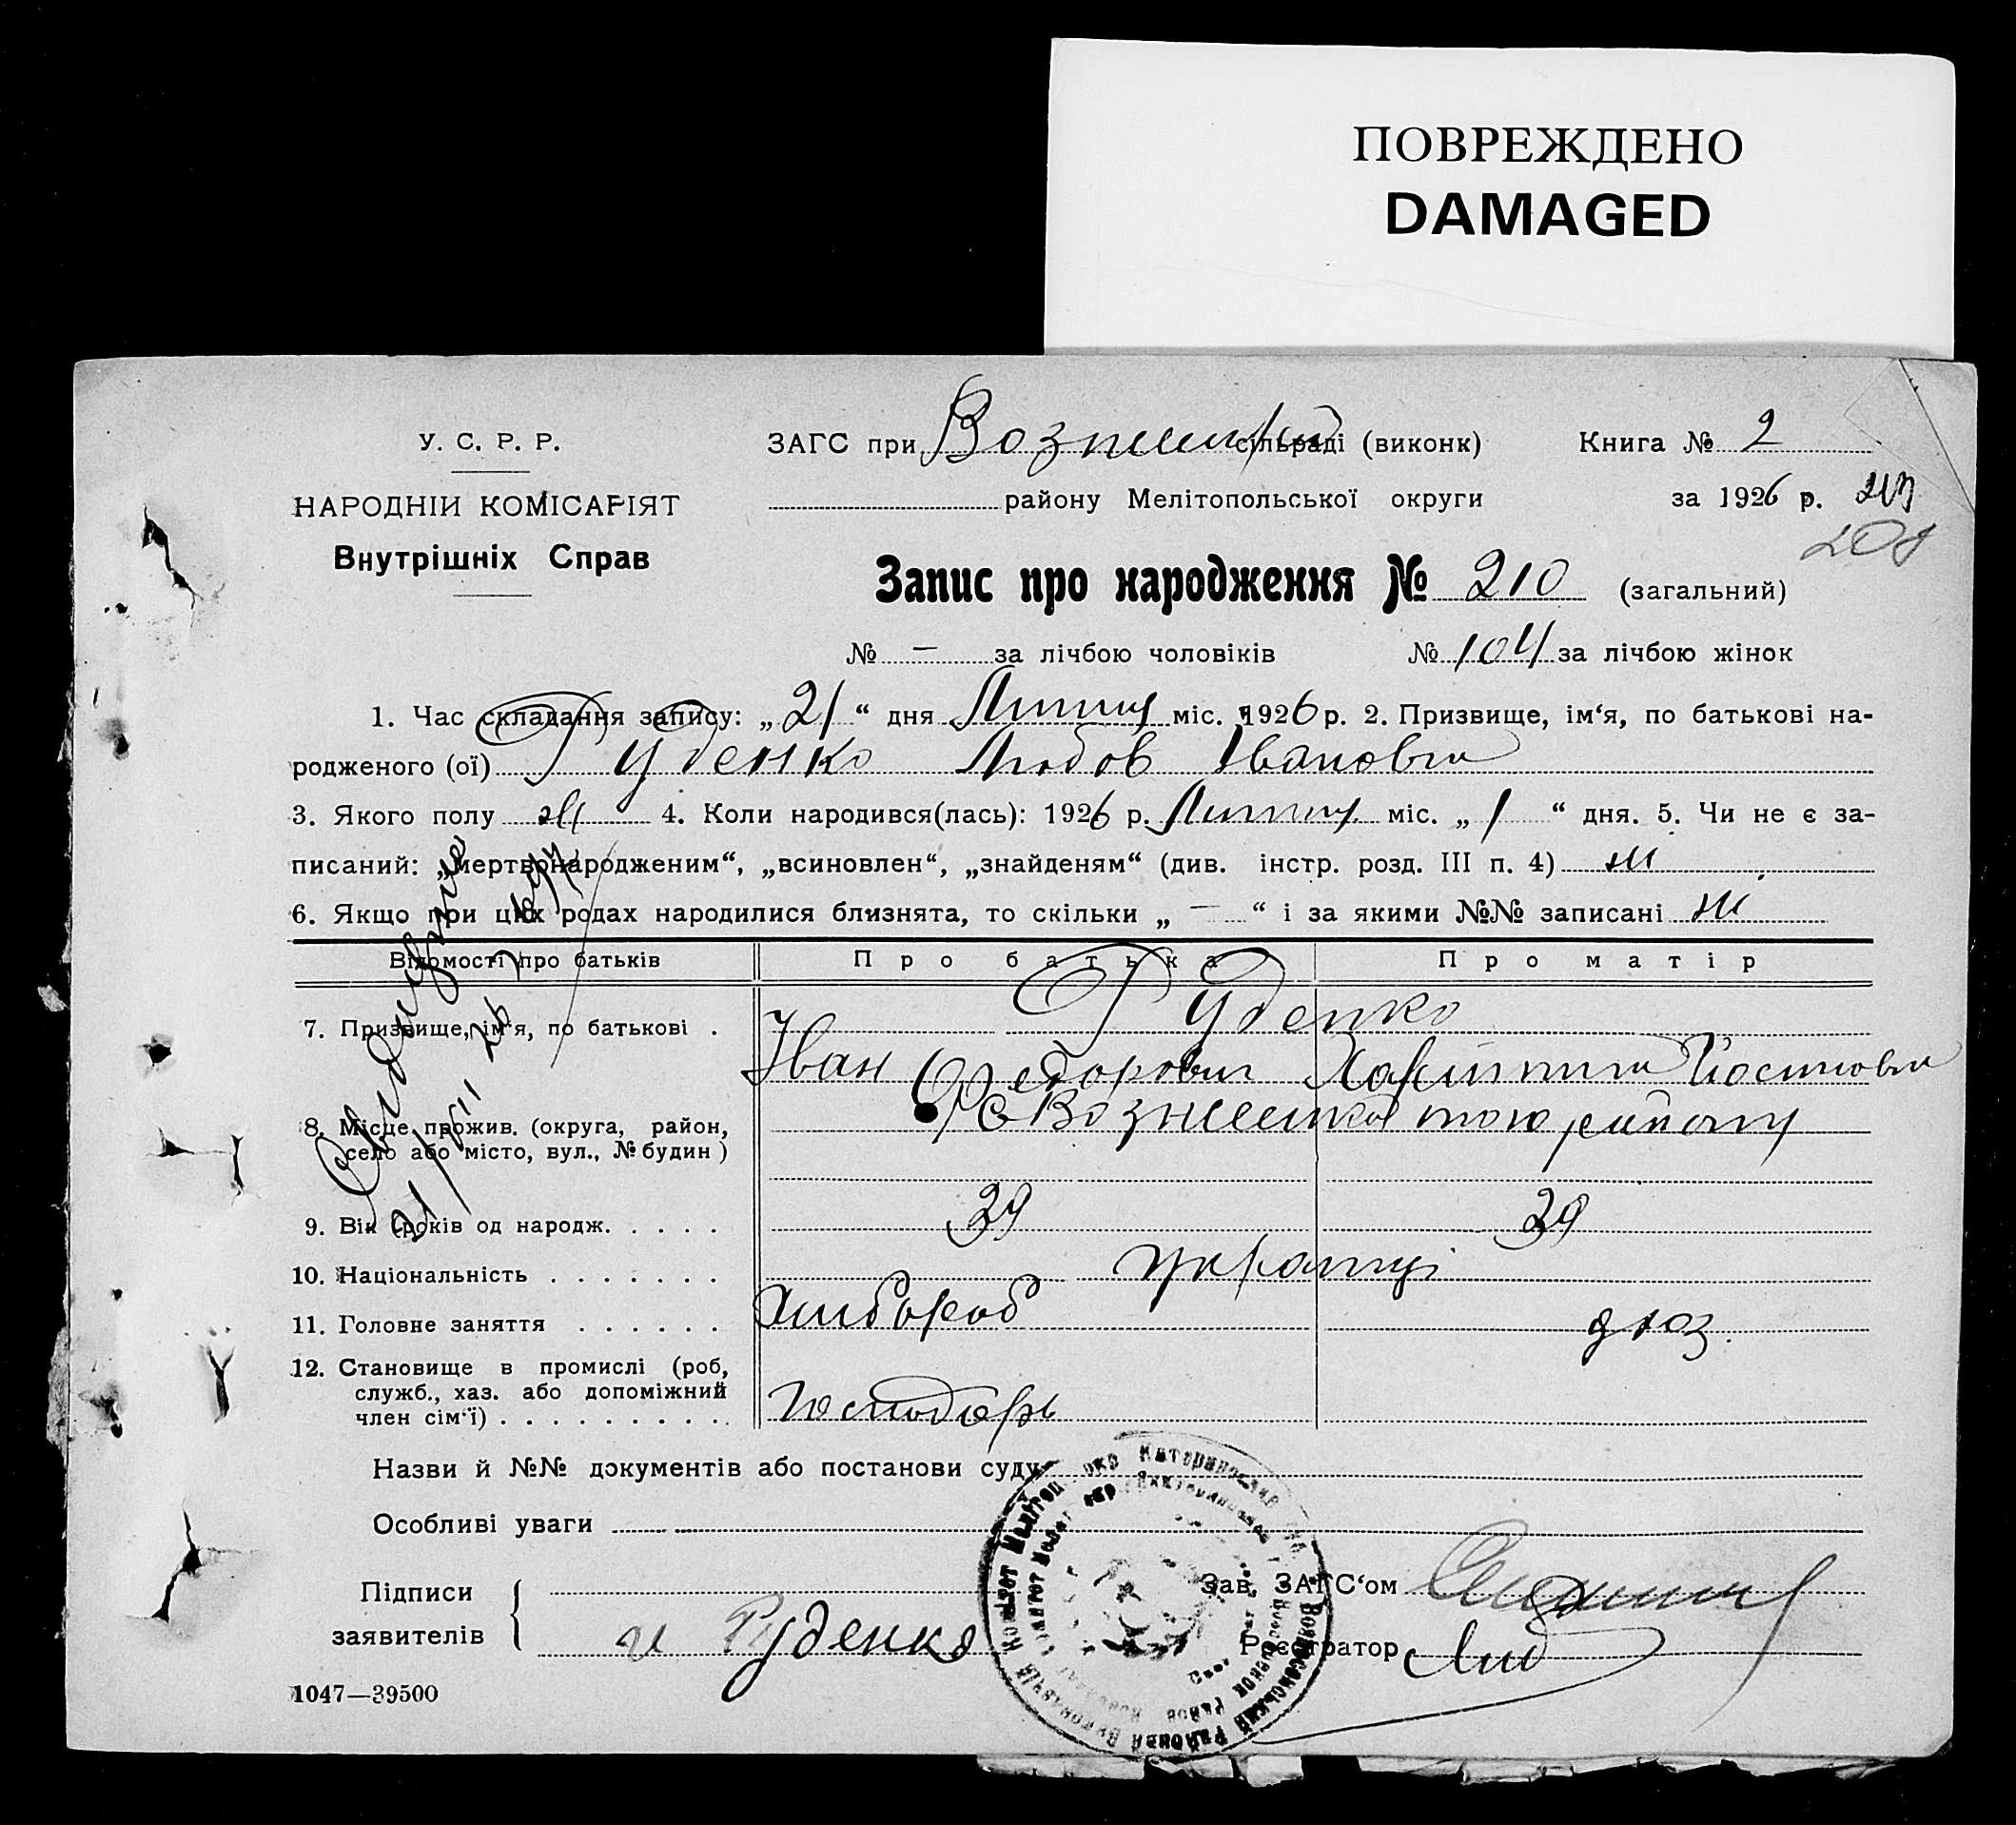 ПОВРЕЖДЕНО
DAMAGED
У. С. Р. Р.
НАРОДНІЙ КОМІСАРІЯТ
Внутрішніх Справ
ЗАГС при сільраді (виконк)
Книга № 2
району Мелітопольської округи
за 1926 р. 213
208
Запис про народження № 210 (загальний)
№ — за лічбою чоловіків № 104 за лічбою жінок
1. Час складання запису: „21“ дня Липня міс. 1926 р. 2. Призвище, ім‘я, по батькові на-
родженого (ої) Руденко Любов Івановна
3. Якого полу ж 4. Коли народився(лась): 1926 р. Липня міс. „1“ дня. 5. Чи не є за-
писаний: „мертвонародженим“, „всиновлен“, „знайденям“ (див. інстр. розд. III п. 4) ні
6. Якщо при цих родах народилися близнята, то скільки „—“ і за якими №№ записані ні
Відомості про батьків Про батька Про матір
7. Призвище, ім‘я, по батькові . Руденко
Іван Федорович
8. Місце прожив. (округа, район,
село або місто, вул., № будин)
с Вознесенка того району
9. Вік (років од народж. . . . . 29 29
10. Національність . . . . . . . українці
11. Головне заняття . . . . . . Хлібороб д хоз.
12. Становище в промислі (роб,
служб., хаз. або допоміжний
член сім‘ї) . . . . . . . . . . Господарь
Назви й №№ документів або постанови суду
Особливі уваги
Підписи
заявителів
и Руденко
Зав. ЗАГС‘ом
Реєстратор
1047—39500